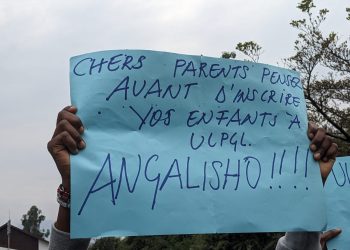 CHERS PARENTS PENSEZ
AVANT D'INSCRIRE
VOS ENFANTS À
ULPGL.
ANGALISHO!!!!